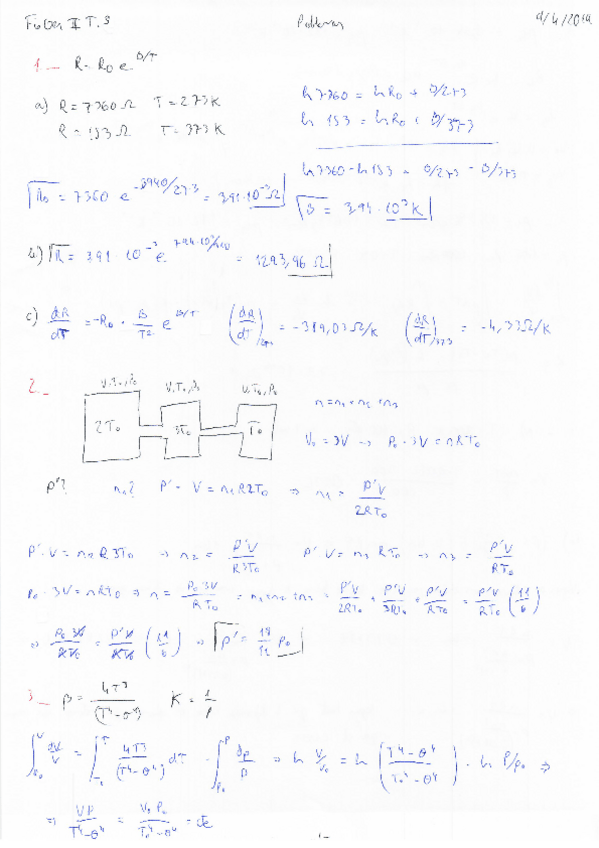 Física II T.3 Problemas 9/4/2019
1_ R = R₀ e^B/T
a) R = 7360 Ω T = 273 K
R = 153 Ω T = 373 K
ln 7360 = ln R₀ + B/273
ln 153 = ln R₀ + B/373
ln 7360 - ln 153 = B/273 - B/373
R₀ = 7360 e^-3940/273 = 3,91·10⁻³ Ω
B = 3,94·10³ K
b) R = 3,91·10⁻³ e = 1293,96 Ω
c) dR/dT = -R₀ · B/T² e^B/T (dR/dT)₂₇₃ = -389,03 Ω/K (dR/dT)₃₇₃ = -4,33 Ω/K
2_ V,T₀,P₀ V,T₀,P₀ V,T₀,P₀
2T₀ 3T₀ T₀
n = n₁ + n₂ + n₃
V₀ = 3V → P₀ · 3V = nRT₀
P'? n₁? P' · V = n₁R2T₀ ⇒ n₁ = P'V/2RT₀
P'·V = n₂R3T₀ → n₂ = P'V/R3T₀ P'V = n₃RT₀ → n₃ = P'V/RT₀
P₀·3V = nRT₀ ⇒ n = P₀·3V/RT₀ = n₁+n₂+n₃ = P'V/2RT₀ + P'V/3RT₀ + P'V/RT₀ = P'V/RT₀ (11/6)
⇒ P₀3V/RT₀ = P'V/RT₀ (11/6) ⇒ P' = 18/11 P₀
3_ β = 4T³/(T⁴-θ⁴) K = 1/P
∫ dV/V = ∫ 4T³/(T⁴-θ⁴) dT - ∫ dp/p ⇒ ln V/V₀ = ln (T⁴-θ⁴/T₀⁴-θ⁴) - ln P/P₀ ⇒
⇒ VP/T⁴-θ⁴ = V₀P₀/T₀⁴-θ⁴ = cte